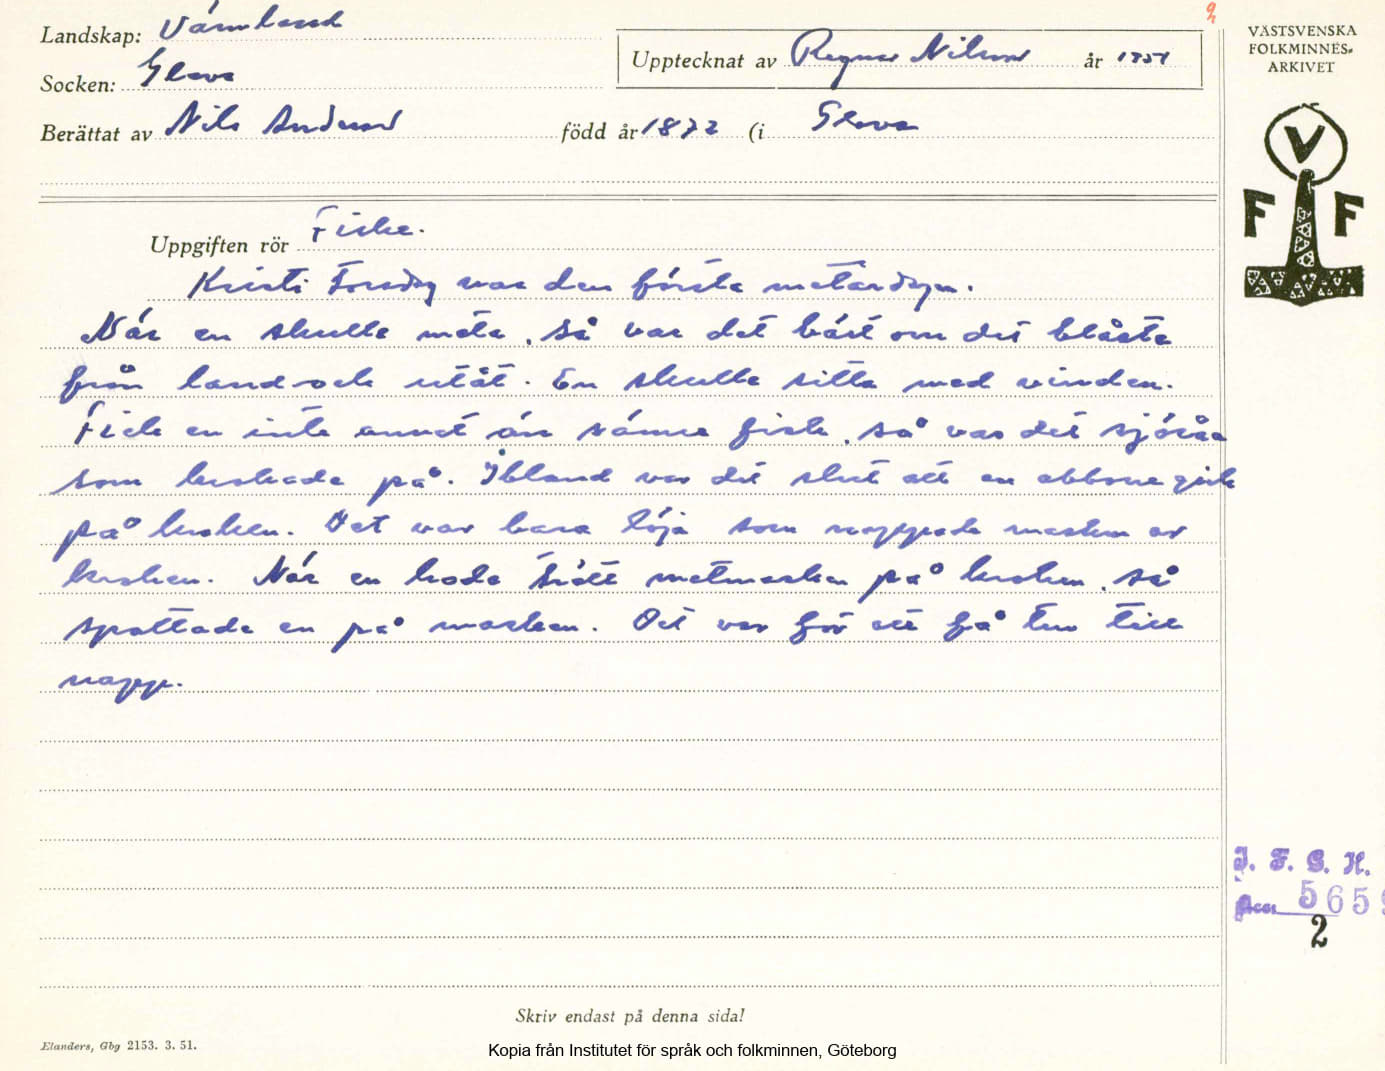 Landskap: Värmland
Socken: Glava
Upptecknat av Ragnar Nilsson år 1951
Berättat av Nils Andersson född år 1872 (i Glava
VÄSTSVENSKA
FOLKMINNES-
ARKIVET
V
F F
Uppgiften rör Fiske.
Kristi Torsdag var den första metardagen.
När en skulle meta, så var det bäst om det blåste
från land och utåt. En skulle sitta med vinden.
Fick en inte annat än sämre fisk, så var det sjöråa
som krokade på. Ibland var det slut att en abborre gick
på kroken. Det var bara löja som nappade masken av
kroken. När en hade trätt metmasken på kroken, så
spottade en på masken. Det var för att få tur till
napp.
I. F. G. H.
Acc 5659
2
Skriv endast på denna sida!
Elanders, Gbg 2153. 3. 51.
Kopia från Institutet för språk och folkminnen, Göteborg